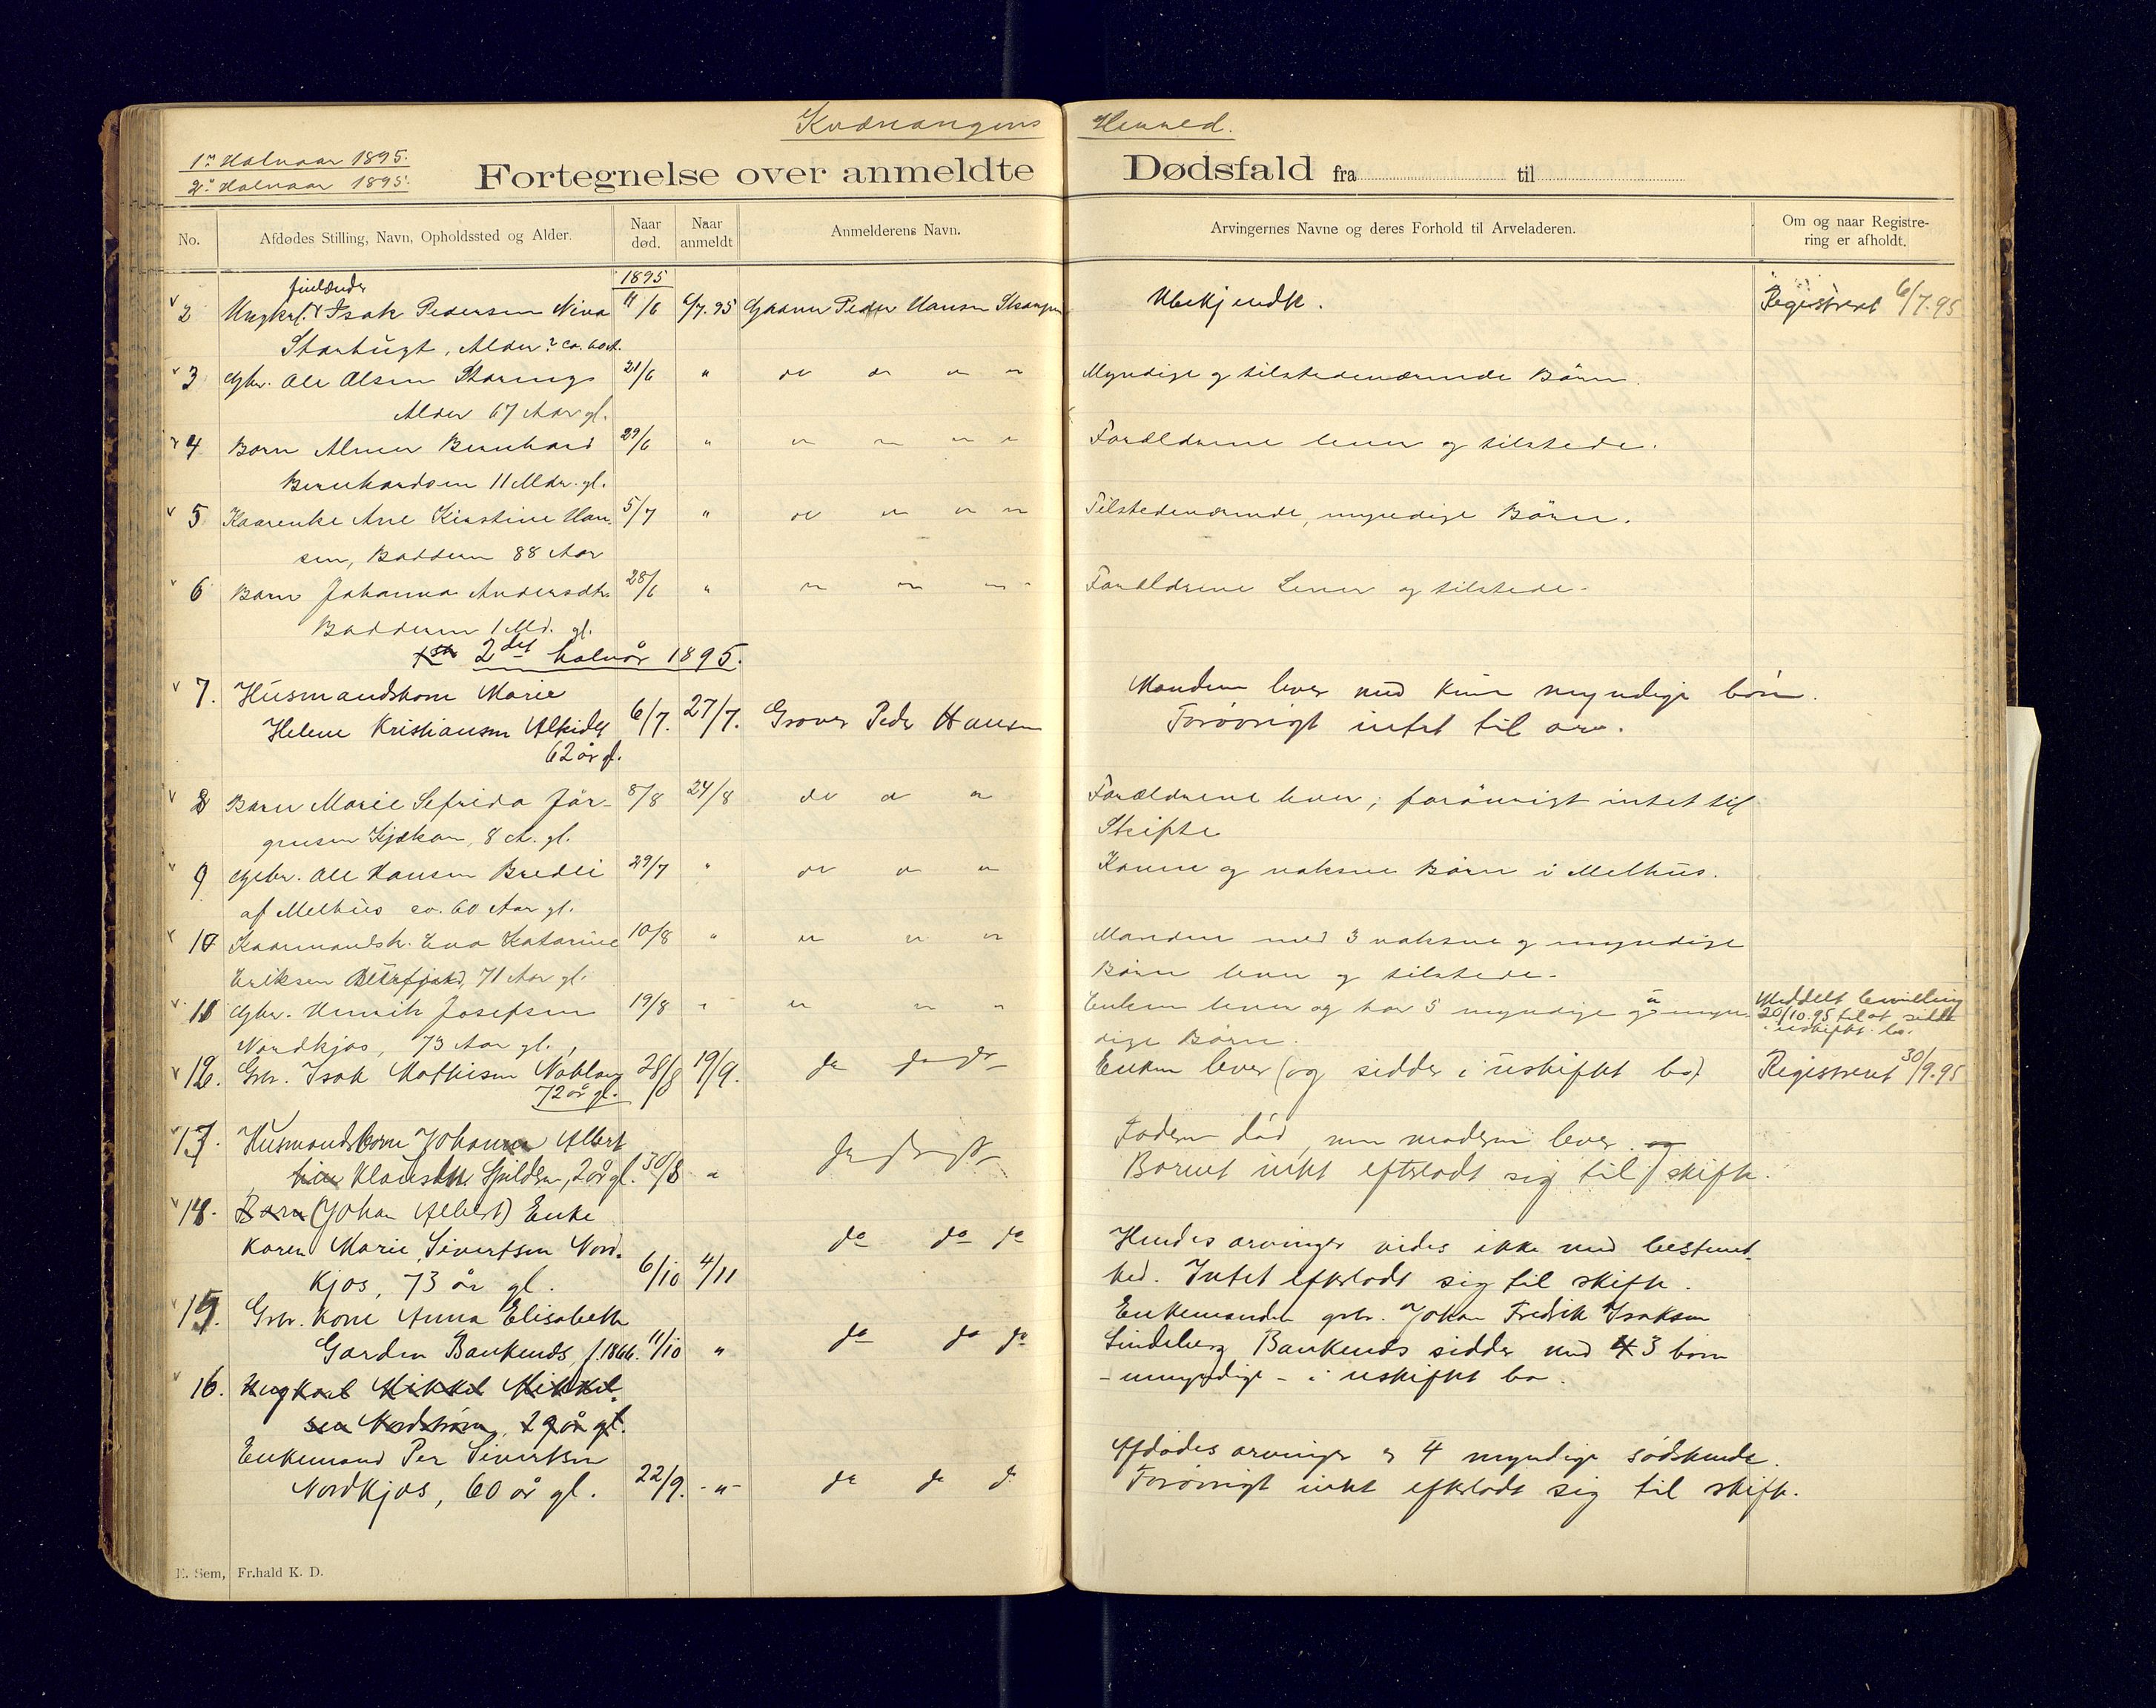 Kvænangens Herred.
1ste Halvaar 1895.
2det Halvaar 1895.
Fortegnelse over anmeldte Dødsfald fra til
No.
Afdødes Stilling, Navn, Opholdssted og Alder.
Naar død.
Naar anmeldt
Anmelderens Navn.
Arvingernes Navne og deres Forhold til Arveladeren.
Om og naar Registrering er afholdt.
1895
finlænder
2 Ungkrl. Isak Pedersen Niva 11/6 6/7.95 Graver Peder Hansen Ubekjendt. Registreret 6/7.95
Storbugt, Alder? ca. 60 A.
3 Gbr. Ole Olsen 21/6 " do Myndige og tilstedeværende Børn.
Alder 67 Aar gl.
4 Barn Bernhard 29/6 " Forældrene lever og tilstede.
Bernhardsen 11 Mdr. gl.
5 Kaarenke Ane Kirstine Han 5/7 " do Tilstedeværende, myndige Børn.
sen, Baddern 88 Aar
6 Barn Johanna Andersdtr 28/6 " Forældrene Lever og tilstede.
Baddern 1 Md. gl.
2det halvår 1895.
7. Husmandskone Marie Manden lever med kun myndige børn.
Helene Kristiansen 6/7. 27/7. Graver Peder Hansen Forøvrigt intet til arv.
62 år gl.
8 Barn Marie Sefrida Jör- 8/8 24/8 do Forældrene lever; forøvrigt intet til
gensen Kjækan, 8 A. gl. Skifte
9 Gbr. Ole Hansen Bredli 29/7 " do Kone og voksne Børn i Melhus.
af Melhus ca. 60 Aar gl.
10 Kaarmandsk. Eva Katarine 10/8 " Manden med 3 voksne og myndige
Eriksen 71 Aar gl. Børn lever og tilstede.
11 Gbr. Henrik Josefsen 19/8 " Enken lever og har 5 myndige og umyn- Meddelt bevilling
20/10.95 til at sidde
i uskiftet bo.
Nordkjos, 73 Aar gl. dige Børn.
12. Gbr. Isak Mathisen 28/8 19/9. do Enken lever (og sidder i uskiftet bo). Registreret 30/9.95
72 år gl.
13. Husmandsbarn Johan Albert Faderen död, men moderen lever. og
Klausen Spildern, 2 år gl. 30/8 " Barnet intet efterladt sig til skifte.
14. Barn (Johan Albert) Enke
Karen Marie Sivertsen Nord- do do do Hendes arvinger vides ikke med bestemt-
kjos, 73 år gl. 6/10 4/11 hed. Intet efterladt sig til skifte.
15. Gbr. kone Anna Elisabeth Enkemanden gbr. Johan Fredrik Isaksen
Garden f. 1866. 11/10 " do do do Lindeberg sidder med 4 3 børn
- umyndige - i uskiftet bo.
16. Ungkarl Mikkel Mikkel-
sen Nordstrøm, 29 år gl.
Enkemand Per Sivertsen Afdødes arvinger er 4 myndige sødskende.
Nordkjos, 60 år gl. 22/9. -"- do do do Forøvrigt intet efterladt sig til skifte.
E. Sem, Fr.hald K. D.